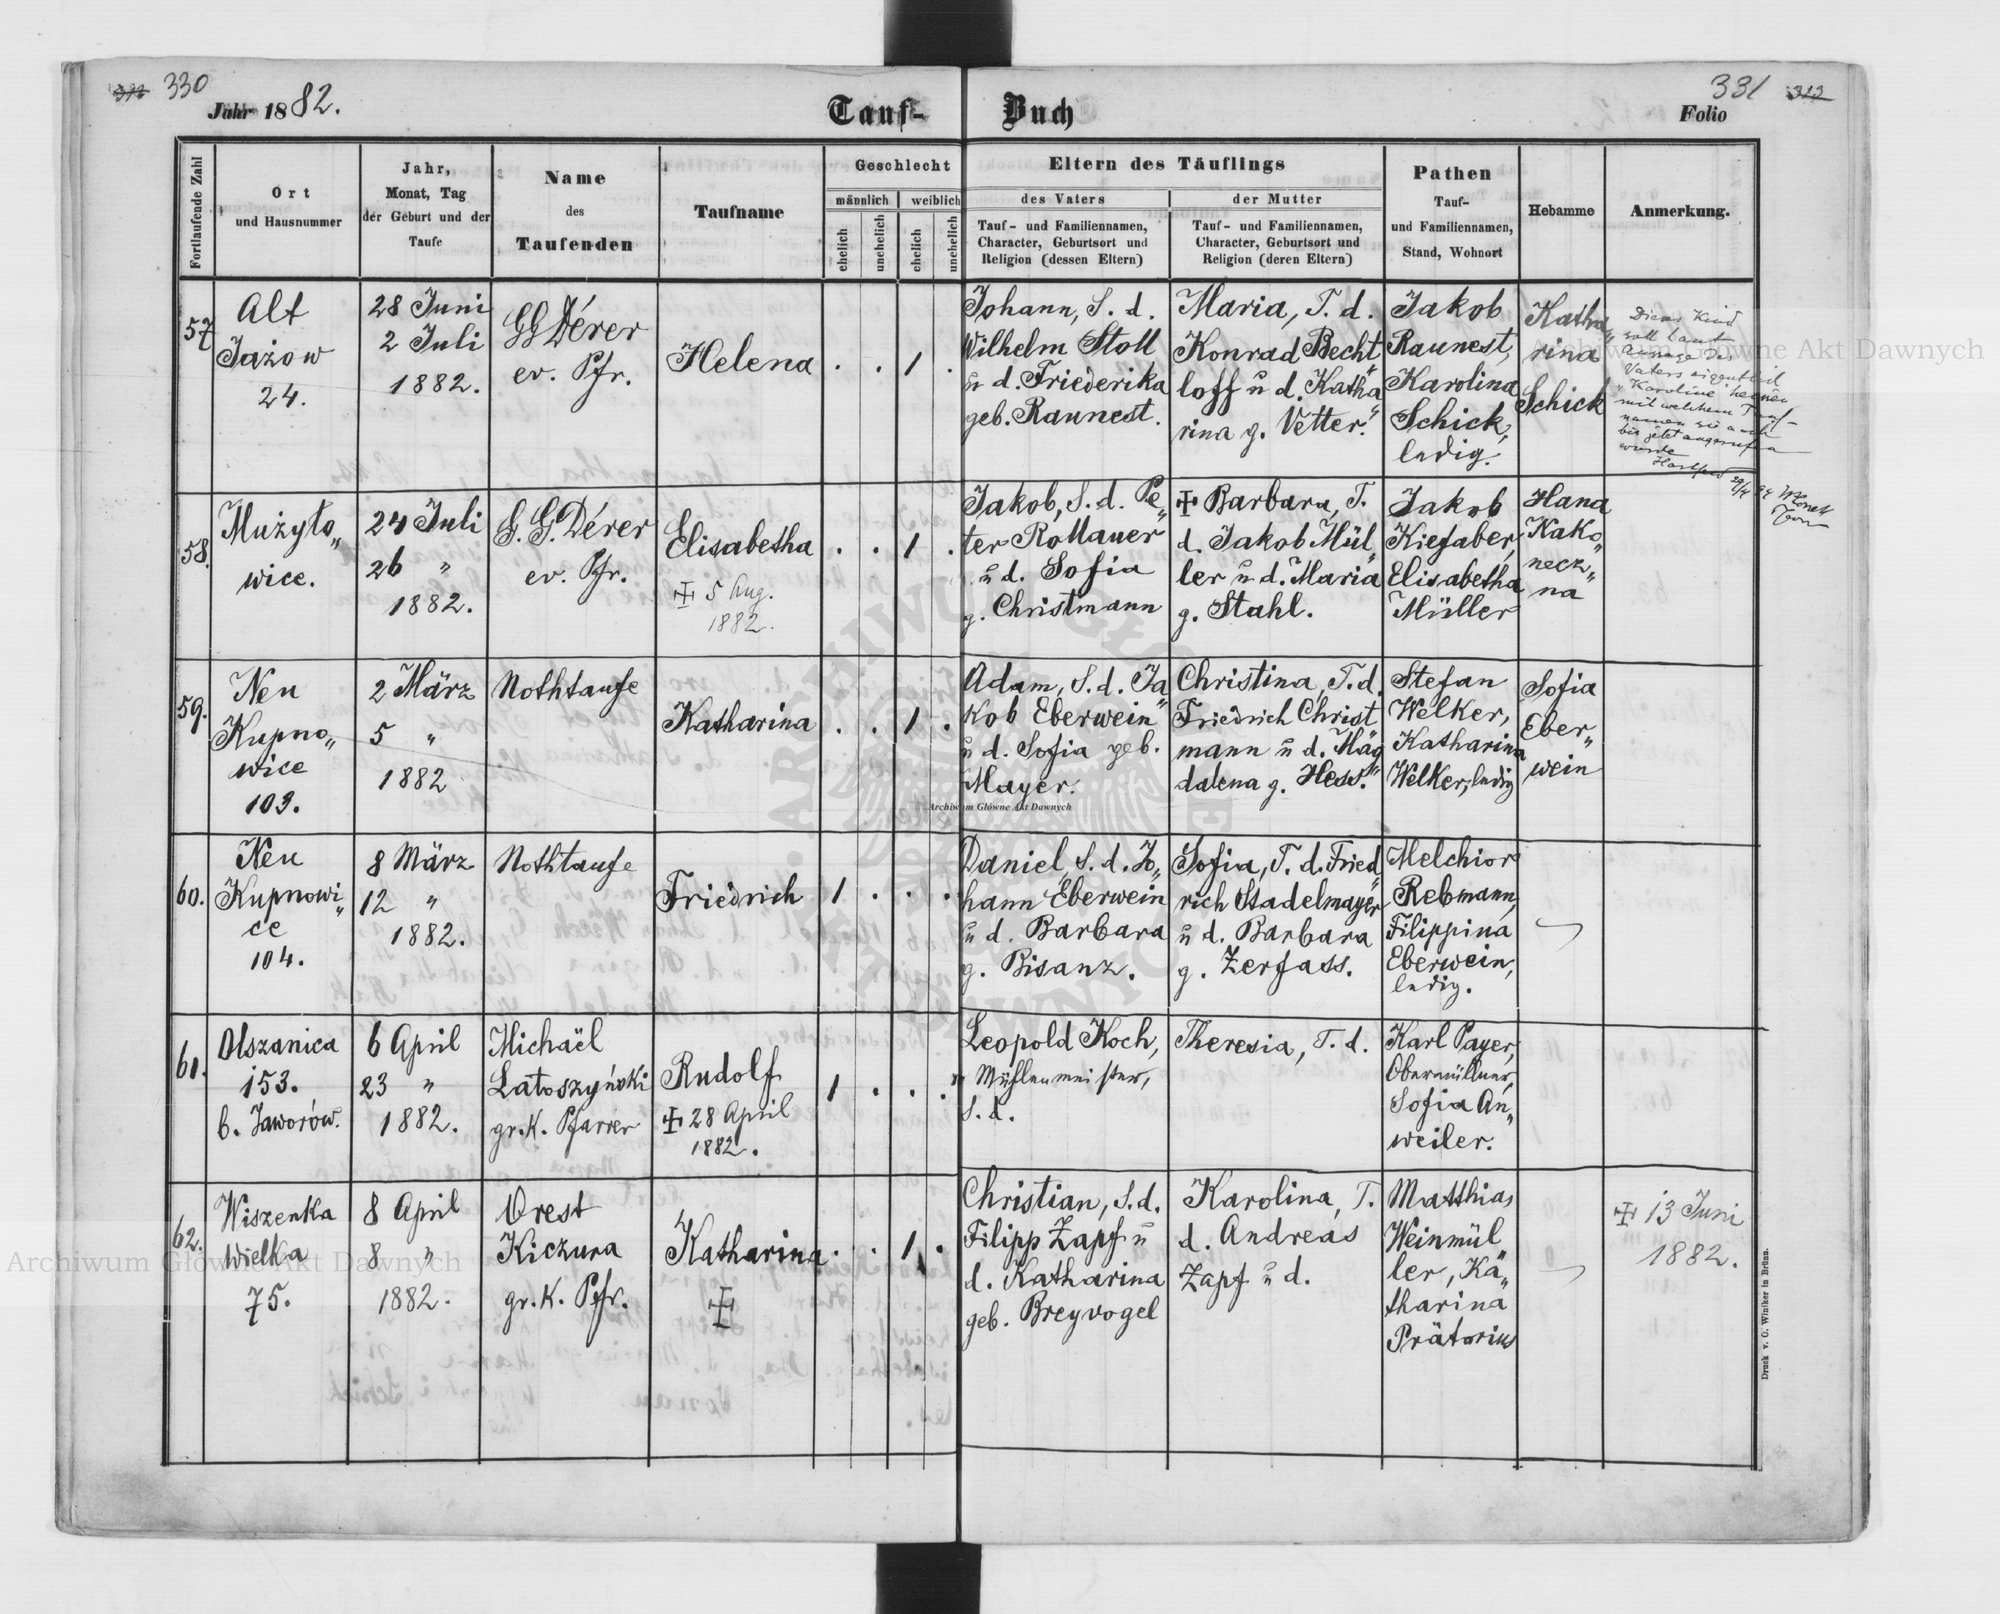 312 330
Jahr 1882.
Tauf-Buch
331 313
Folio
Fortlaufende Zahl
Ort
und Hausnummer
Jahr,
Monat, Tag
der Geburt und der
Taufe
Name
des
Taufenden
Taufname
Geschlecht
männlich
weiblich
ehelich
unehelich
ehelich
unehelich
Eltern des Täuflings
des Vaters
Tauf- und Familiennamen,
Character, Geburtsort und
Religion (dessen Eltern)
der Mutter
Tauf- und Familiennamen,
Character, Geburtsort und
Religion (deren Eltern)
Pathen
Tauf-
und Familiennamen,
Stand, Wohnort
Hebamme
Anmerkung.
57
Alt
Jażow
24.
28 Juni
2 Juli
1882.
GG Dérer
ev. Pfr.
Helena
. . 1 .
Johann, S. d.
Wilhelm Stoll
u d. Friederika
geb. Raunest.
Maria, T. d.
Konrad Becht„
loff u d. Katha„
rina g. Vetter.
Jakob
Raunest,
Karolina
Schick,
ledig.
Katha„
rina
Schick
Dieses Kind
soll laut
Vaters eigentlich
"Karoline" heissen
mit welchem Tauf-
namen sie auch
bis jetzt angerufen
wurde
58.
Mużyło„
wice.
24 Juli
26 „
1882.
G. G. Dérer
ev. Pfr.
Elisabetha
✠ 5 Aug.
1882.
. . 1 .
Jakob, S. d. Pe„
ter Rollauer
u d. Sofia
g. Christmann
✠ Barbara, T.
d. Jakob Mül„
ler u d. Maria
g. Stahl.
Jakob
Kiefaber,
Elisabetha
Müller
Hana
Kako„
necz„
na
59.
Neu
Kupno„
wice
103.
2 März
5 „
1882
Nothtaufe
Katharina
. . 1 .
Adam, S. d. Ja„
kob Eberwein
u d. Sofia geb.
Mayer.
Christina, T. d.
Friedrich Christ„
mann u d. Mag„
dalena g. Hess.
Stefan
Welker,
Katharina
Welker, ledig
Sofia
Eber„
wein
60.
Neu
Kupnowi„
ce
104.
8 März
12 „
1882.
Nothtaufe
Friedrich
1 . . .
Daniel, S. d. Jo„
hann Eberwein
u d. Barbara
g. Bisanz.
Sofia, T. d. Fried„
rich Stadelmayer
u d. Barbara
g. Zerfass.
Melchior
Rebmann,
Filippina
Eberwein,
ledig.
61.
Olszanica
153.
b. Jaworów.
6 April
23 „
1882.
Michaël
Latoszyński
gr. K. Pfarrer
Rudolf
✠ 28 April
1882.
1 . . .
Leopold Koch,
Mühlenmeister,
S. d.
Theresia, T. d.
Karl Payer,
Obermüllner,
Sofia An„
weiler.
62.
Wiszenka
wielka
75.
8 April
8 „
1882.
Orest
Kiczura
gr. K. Pfr.
Katharina
✠
. . 1 .
Christian, S. d.
Filipp Zapf u
d. Katharina
geb. Breyvogel
Karolina, T.
d. Andreas
Zapf u d.
Matthias
Weinmül„
ler, Ka„
tharina
Prätorius
✠ 13 Juni
1882.
Druck v. C. Winiker in Brünn.
Archiwum Główne Akt Dawnych
Archiwum Główne Akt Dawnych
Archiwum Główne Akt Dawnych